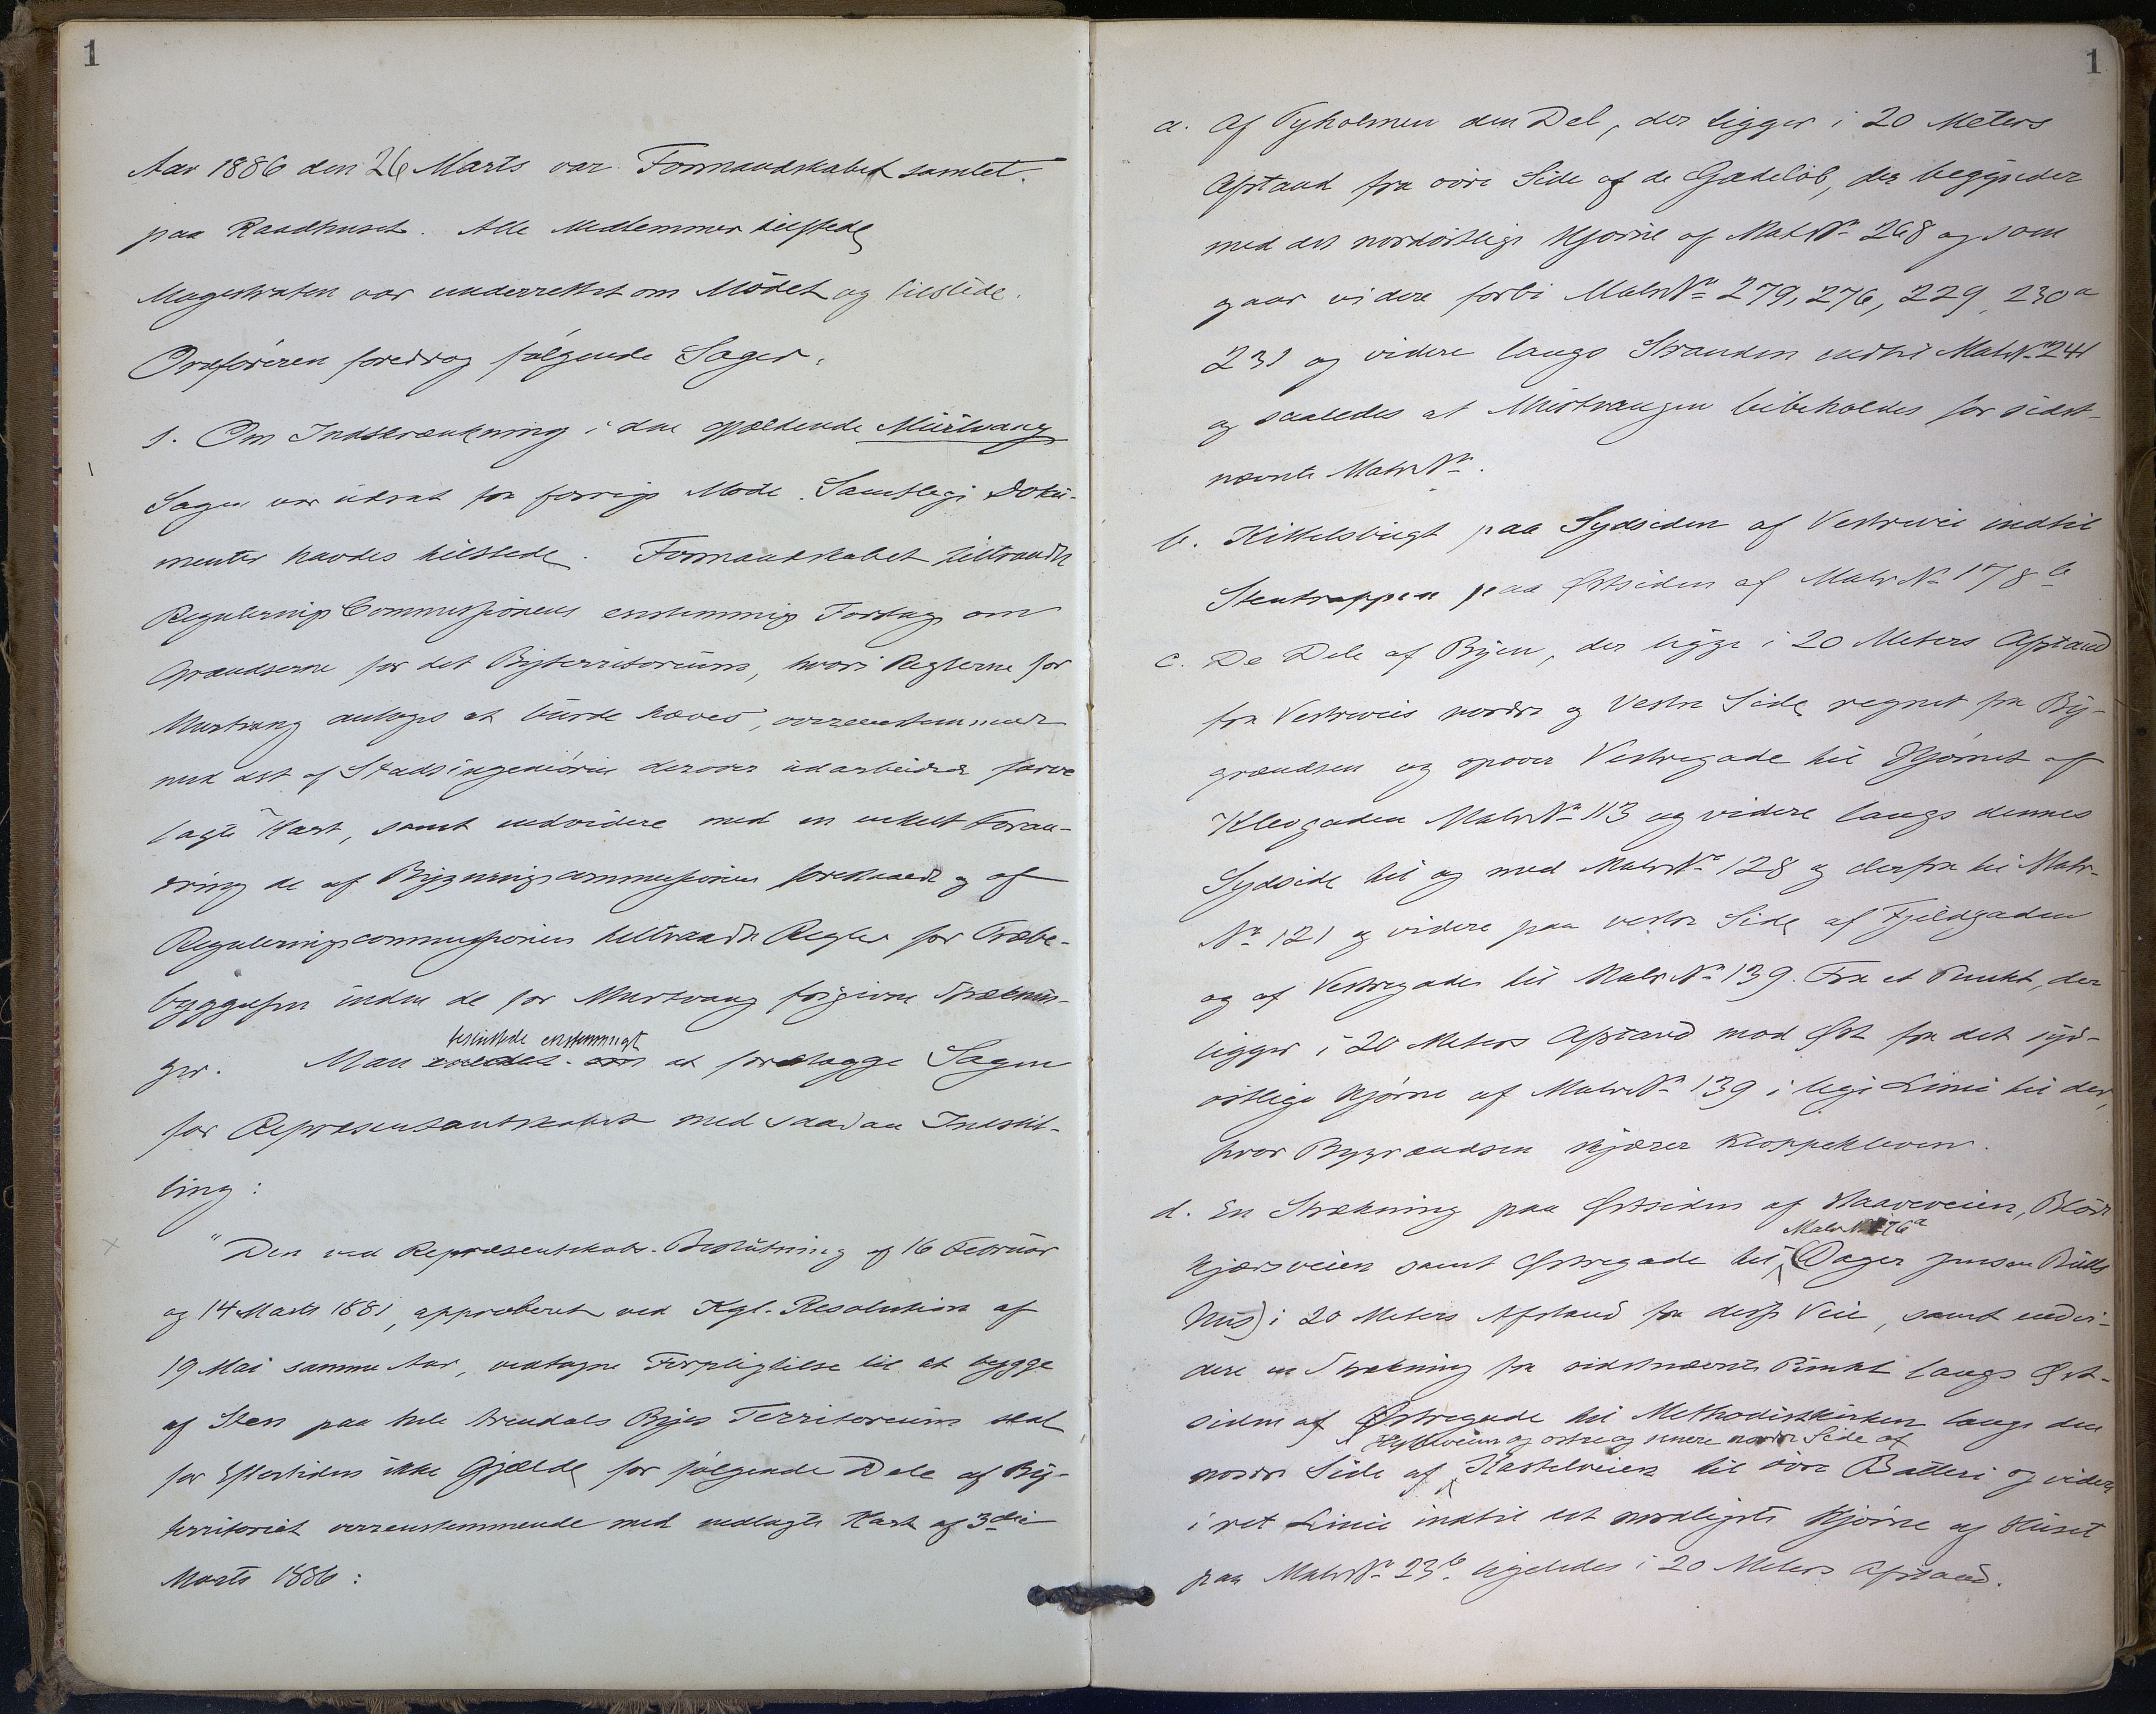 1
Aar 1886 den 26 Marts var Formandskabet samlet
paa Raadhuset. Alle Medlemmer tilstede
Magistraten var underrettet om Mödet og tilstede.
Ordföreren foredrog fölgende Sager:
1. Om Indskrænkning i den gjældende Mürtvang
Sagen var üdsat fra forrige Möde. Samtlige Dokü-
menter havdes tilstede. Formandskabet tiltraadte
Regulerings Commissionens enstemmige Forslag om
Grændserne for det Byterritorium, hvori Reglerne for
Murtvang antages at bürde hæves, overensstemmende
med det af Stadsingeniören derover üdarbeidede forre
lagte Kart, samt endvidere med en enkelt Foran-
dring de af Bygningscommissionen foreslaaede og af
Reguleringscommissionen tiltraadte Regler for Træbe-
byggelsen inden de for Murtvang frigivne Stræknin-
ger. Man besluttede enstemmigt at forelægge Sagen
for Repræsentantskabet med saadan Indstil-
ling:
"Den ved Repræsentskabs-Beslütning af 16 Februar
og 14 Marts 1881, approberet ved Kgl. Resolution af
19 Mai samme Aar, vedtagne Forpligtelse til at bygge
af Sten paa hele Arendals Byes Territorium skal
for Eftertiden ikke Gjælde for fölgende Dele af By-
territoriet overensstemmende med vedlagte Kart af 3die
Marts 1886:
1
a. Af Tyholmen den Del, der ligger i 20 Meters
Afstand fra övre Side af de Gadelöb, der begynder
med det nordöstlige Hjörne af Matr No 268 og som
gaar videre forbi Matr No 279, 276, 229, 230a
231 og videre langs Stranden indtil Matr No 241
og saaledes at Mürtvangen bibeholdes for sidst-
nævnte Matr No.
b. Kittelsbugt paa Sydsiden af Vestrevei indtil
Stentrappen paa Östsiden af Matr No 178b
c. De Dele af Byen, der ligge i 20 Meters Afstand
fra Vestreveis nordre og Vestre Side regnet fra By-
grændsen og opover Vestregade til Hjörnet af
Klevgaden Matr No 113 og videre langs dennes
Sydside til og med Matr No 128 og derfra til Matr-
No 121 og videre paa vestre Side af Fjeldgaden
og af Vestregade til Matr No 139. Fra et Punkt, der
ligger i 20 Meters Afstand mod Öst fra det syd-
östlige Hjörne af Matr No 139 i lige Linie til der,
hvor Bygrændsen skjærer Kloppekleven.
d. En Strækning paa Östsiden af Haaveveien, Blöde
kjærsveien samt Östregade til Matr No 76a (Dager Jensen Bülls
Hus) i 20 Meters Afstand fra disse Veie, samt endvi-
dere en Strækning fra sidstnævnte Punkt langs Öst-
siden af Östregade til Methodistkirken langs den
nordre Side af Hylleveien og östre og senere nordre Side af Kastelveien til övre Batteri og videre
i ret Linie indtil det nordligste Hjörne af Huset
paa Matr No 23b ligeledes i 20 Meters Afstand.